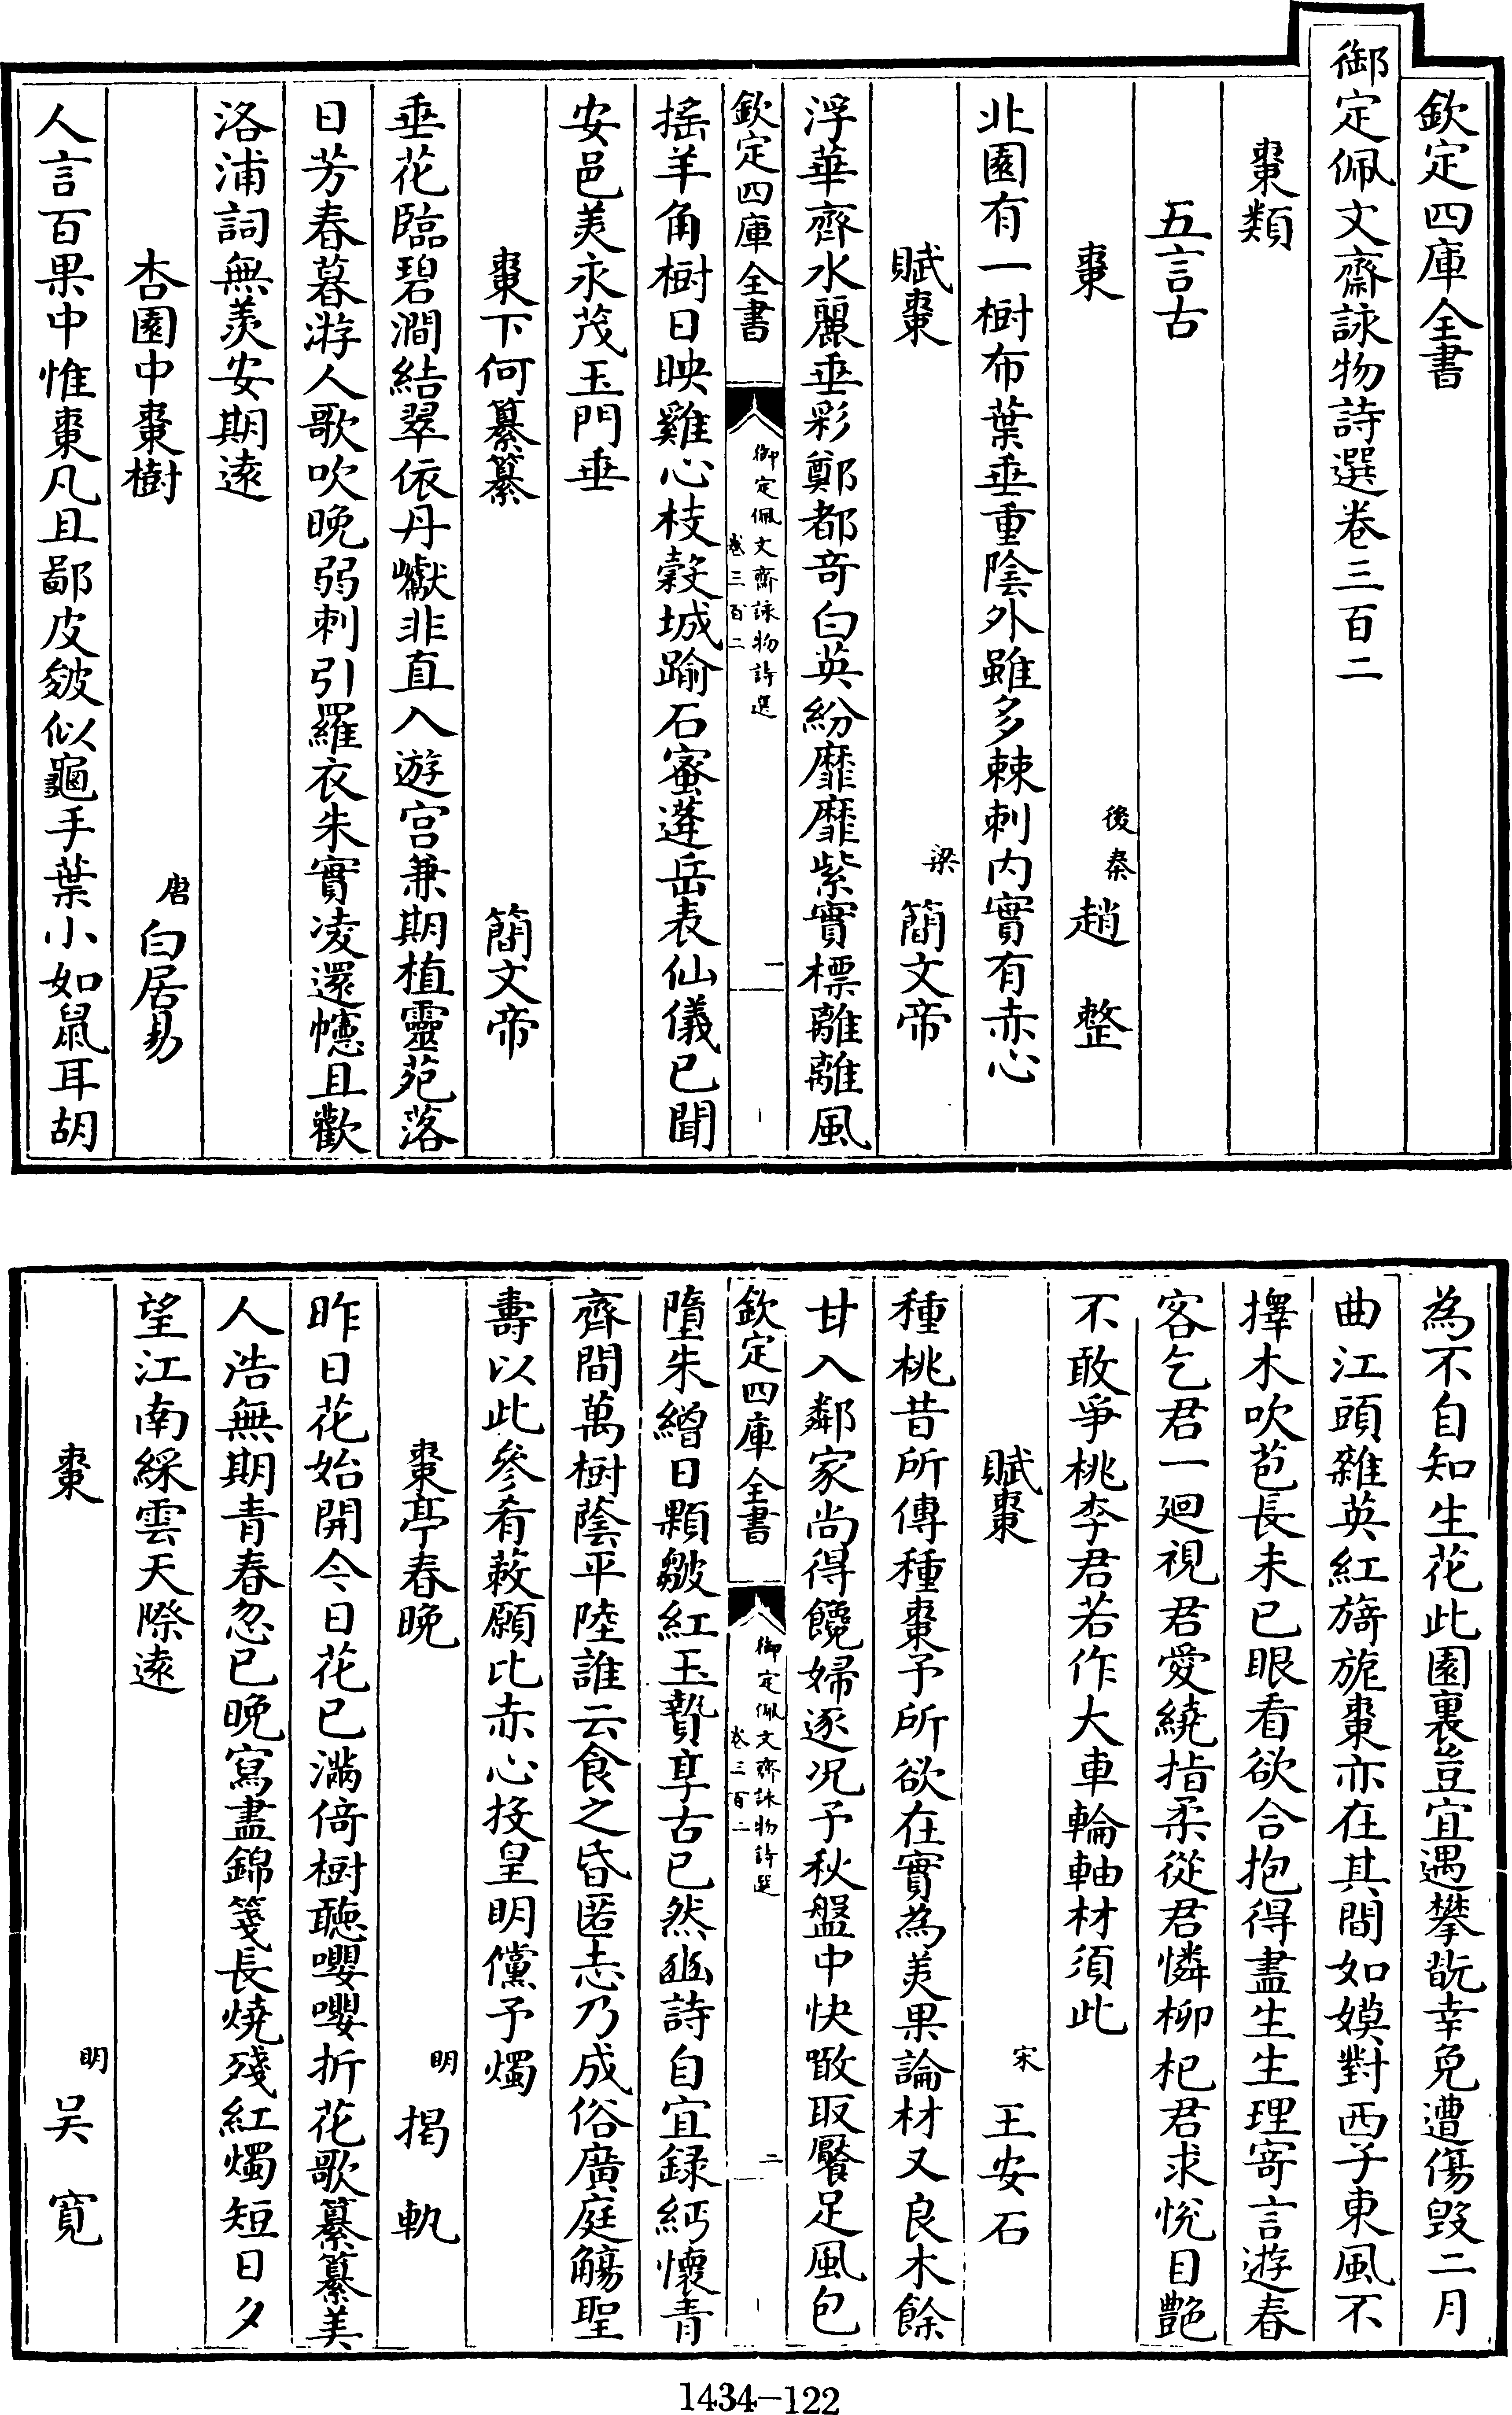 欽定四庫全書
御定佩文齋詠物詩選卷三百二
棗類
五言古
棗 後秦 趙整
北園有一樹布葉垂重陰外雖多棘刺内實有赤心
賦棗 梁 簡文帝
浮華齊水麗垂彩鄭都奇白英紛靡靡紫實標離離風
欽定四庫全書 御定佩文齋詠物詩選 卷三百二 一
搖羊角樹日映雞心枝榖城踰石蜜蓬岳表仙儀已聞
安邑美永茂玉門垂
棗下何纂纂 簡文帝
垂花臨碧澗結翠依丹巘非直入遊宫兼期植靈苑落
日芳春暮游人歌吹晚弱刺引羅衣朱實凌還幰且歡
洛浦詞無羨安期逺
杏園中棗樹 唐 白居易
人言百果中惟棗凡且鄙皮皴似龜手葉小如鼠耳胡
為不自知生花此園裏豈宜遇攀翫幸免遭傷毁二月
曲江頭雜英紅旖旎棗亦在其間如嫫對西子東風不
擇木吹苞長未已眼看欲合抱得盡生生理寄言遊春
客乞君一迴視君愛繞指柔從君憐柳杞君求悅目艷
不敢爭桃李君若作大車輪軸材須此
賦棗 宋 王安石
種桃昔所傳種棗予所欲在實為美果論材又良木餘
甘入鄰家尚得饞婦逐况予秋盤中快噉取饜足風包
欽定四庫全書 御定佩文齋詠物詩選 卷三百二 二
墮朱繒日顆皺紅玉贄享古已然豳詩自宜録緬懷青
齊間萬樹蔭平陸誰云食之昏匿志乃成俗廣庭觴聖
壽以此參肴蔌願比赤心投皇明儻予燭
棗亭春晚 明 揭軌
昨日花始開今日花已滿倚樹聴嚶嚶折花歌纂纂美
人浩無期青春忽已晚寫盡錦箋長燒殘紅燭短日夕
望江南綵雲天際逺
棗 明 吴寛
1434-122